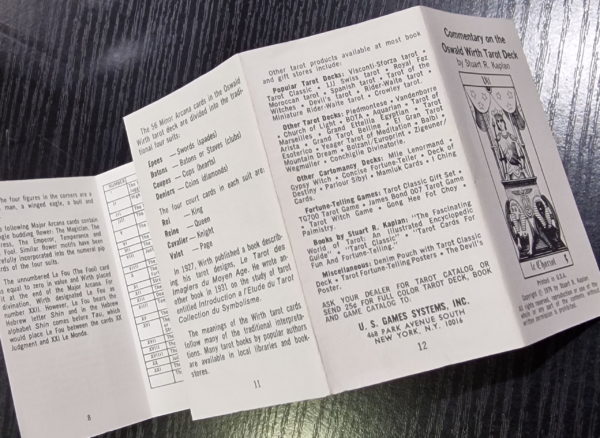 he four figures in the corners are a
man, a winged eagle, a bull and
following Major Arcana cards contain
ngle budding flower: The Magician, The
ress, The Emperor, Temperance and
Fool. Similar flower motifs have been
fully incorporated into the numeral pip
rds of the four suits.
The unnumbered La Fou (The Fool) card
is equal to zero in value and Wirth places
it at the end of the Major Arcana. For
divination, Wirth designated Le Fou as
number XXII. However, Le Fou bears the
Hebrew letter Shin and in the Hebrew
alphabet Shin comes before Tau, which
would place La Fou between the cards XX
Judgment and XXI Le Monde.
8
NUMBER
The 56 Minor Arcana cards in the Oswald
Wirth tarot deck are divided into the tradi-
tional four suits:
Epees — Swords (spades)
Batons — Batons or Staves (clubs)
Coupes — Cups (hearts)
Deniers — Coins (diamonds)
The four court cards in each suit are:
Roi — King
Reine — Queen
Cavalier — Knight
Valet — Page
In 1927, Wirth published a book describ-
ing his tarot designs, Le Tarot des
Imagiers du Moyen Age. He wrote an-
other book in 1931 on the study of tarot
entitled Introduction a l'Etude du Tarot
Collection du Symbolisme.
The meanings of the Wirth tarot cards
follow many of the traditional interpreta-
tions. Many tarot books by popular authors
are available in local libraries and book-
stores.
11
Other tarot products available at most book
and gift stores include:
Popular Tarot Decks: Visconti-Sforza tarot •
Tarot Classic • 1JJ Swiss tarot • Royal Fez
Moroccan tarot • Spanish tarot • Tarot of the
Witches • Devil's tarot • Rider-Waite tarot •
Miniature Rider-Waite tarot • Crowley tarot.
Other Tarot Decks: Piedmontese • Vandenborre
• Church of Light • BOTA • Aquarian • Tarot of
Marseilles • Grand Etteilla Egyptian • Tarot
Arista • Grand Tarot Belline • El Gran Tarot
Esoterico • Yeager Tarot of Meditation • Balbi •
Mountain Dream • Bolzani/Europrint • Zigeuner/
Wegmuller • Conchiglia Divinatorie.
Other Cartomancy Decks: Mlle Lenormand •
Gypsy Witch • Concise Fortune-Teller • Deck of
Destiny • Parlour Sibyl • Mamluk Cards • I Ching
Cards.
Fortune-Telling Games: Tarot Classic Gift Set •
TG700 Tarot Game • James Bond 007 Tarot Game
• Tarot Witch Game • Gong Hee Fot Choy •
Palmistry.
Books by Stuart R. Kaplan: "The Fascinating
World of Tarot: An Illustrated Encyclopedic
Guide" • "Tarot Classic" • "Tarot Cards For
Fun And Fortune-Telling."
Miscellaneous: Denim Pouch with Tarot Classic
Deck • Tarot Fortune-Telling Posters • The Devil's
Poster.
ASK YOUR DEALER FOR TAROT CATALOG OR
SEND $2 FOR FULL COLOR TAROT DECK, BOOK
AND GAME CATALOG TO:
U. S. GAMES SYSTEMS, INC.
468 PARK AVENUE SOUTH
NEW YORK, N.Y. 10016
12
Commentary on the
Oswald Wirth Tarot Deck
by Stuart R. Kaplan
VII
le Chariot
Printed in U.S.A.
Copyright © 1976 by Stuart R. Kaplan.
All rights reserved, reproduction in
while or any part of the contents without
written permission is prohibited.